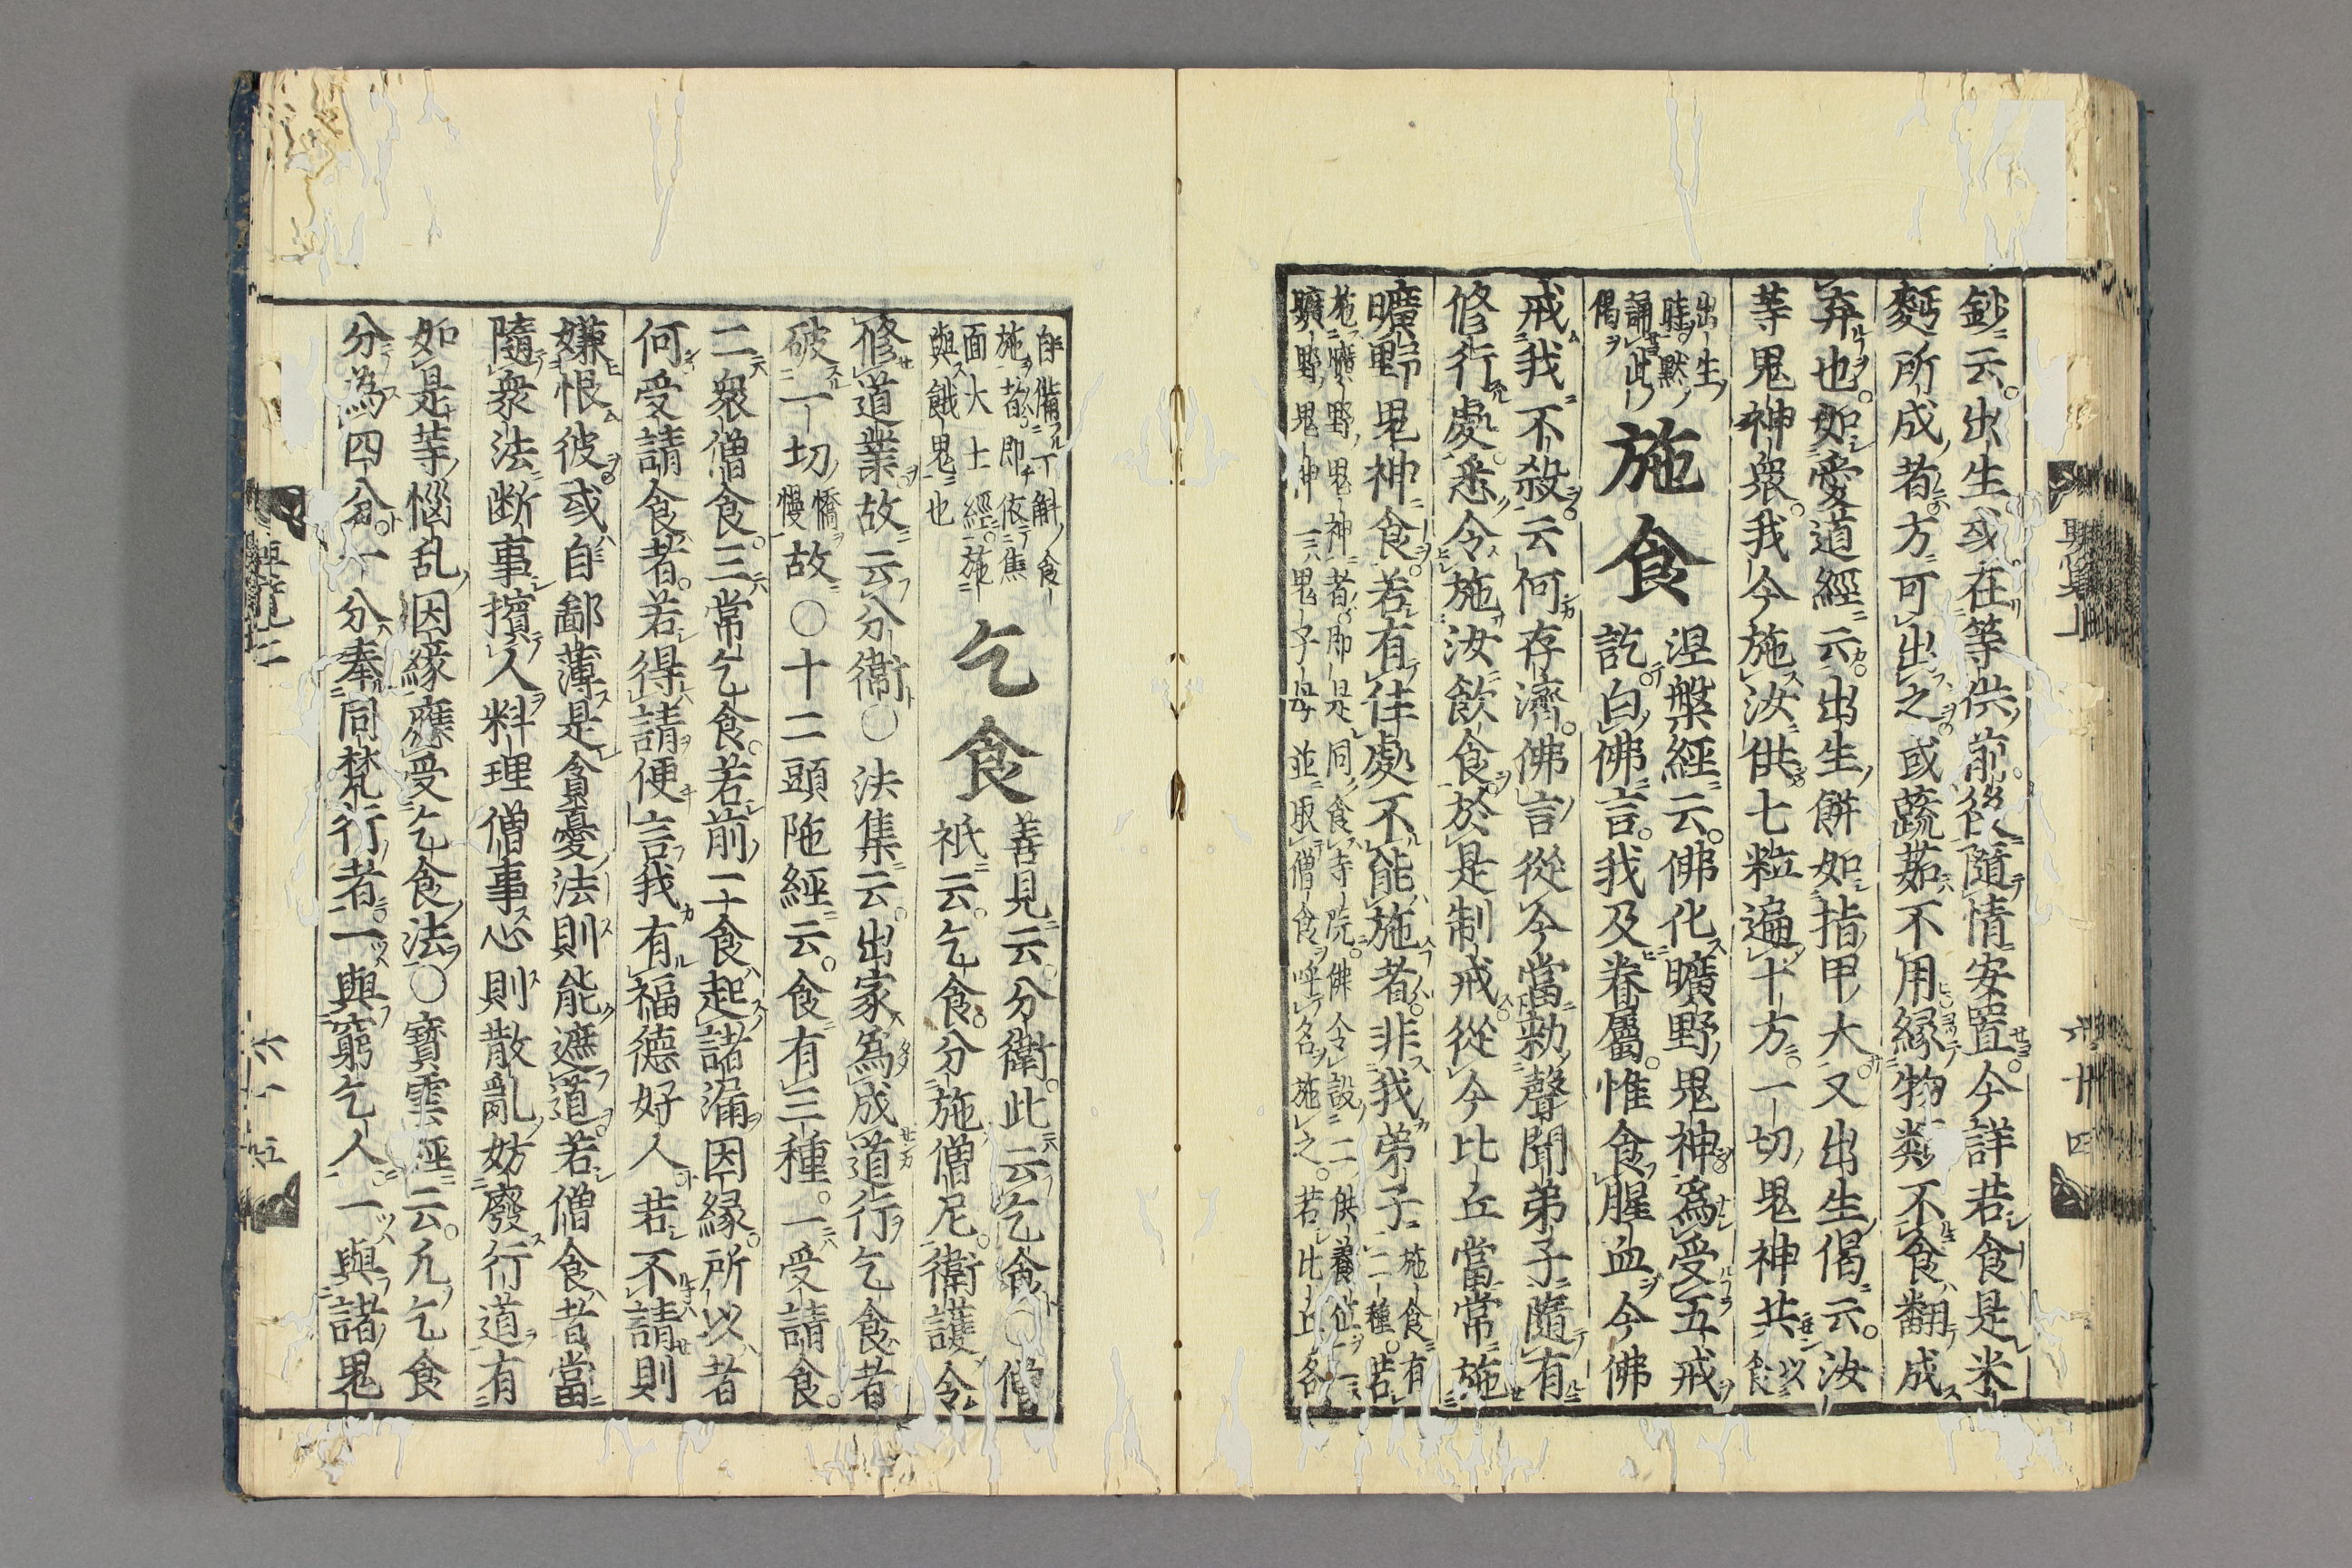 鈔云出生或在等供前後隨情安置今詳若食是米
麪所成者方可出之或蔬茹不用緣物類不食翻成
弃也如愛道經云出生餅如指甲大又出生偈云汝
等鬼神衆我今施汝供七粒遍十方一切鬼神共食以
出生時默
誦此偈
施食
涅槃經云佛化曠野鬼神為受五戒
訖白佛言我及眷屬惟食腥血今佛
戒我不殺云何存濟佛言從今當勑聲聞弟子隨有
修行處悉令施汝飲食於是制戒從今比丘當常施
曠野鬼神食若有住處不能施者非我弟子
施食有
二種若
施曠野鬼神者即是同食寺院佛令設二供養位一
曠野鬼神二鬼子母並取僧食呼名施之若比丘各
自備一斛食
施者即依焦
面大士經施
與餓鬼也
乞食
善見云分衛此云乞食〇僧
祇云乞食分施僧尼衛護令
修道業故云分衛〇法集云出家為成道行乞食者
破一切憍
慢故〇十二頭陁經云食有三種一受請食
二衆僧食三常乞食若前二食起諸漏因緣所以者
何受請食者若得請便言我有福德好人若不請則
嫌恨彼或自鄙薄是貪憂法則能遮道若僧食者當
隨衆法斷事擯人料理僧事心則散亂妨廢行道有
如是等惱乱因緣應受乞食法〇寶雲經云凢乞食
分為四分一分奉同梵行者一與窮乞人一與諸鬼
六十四
六十五